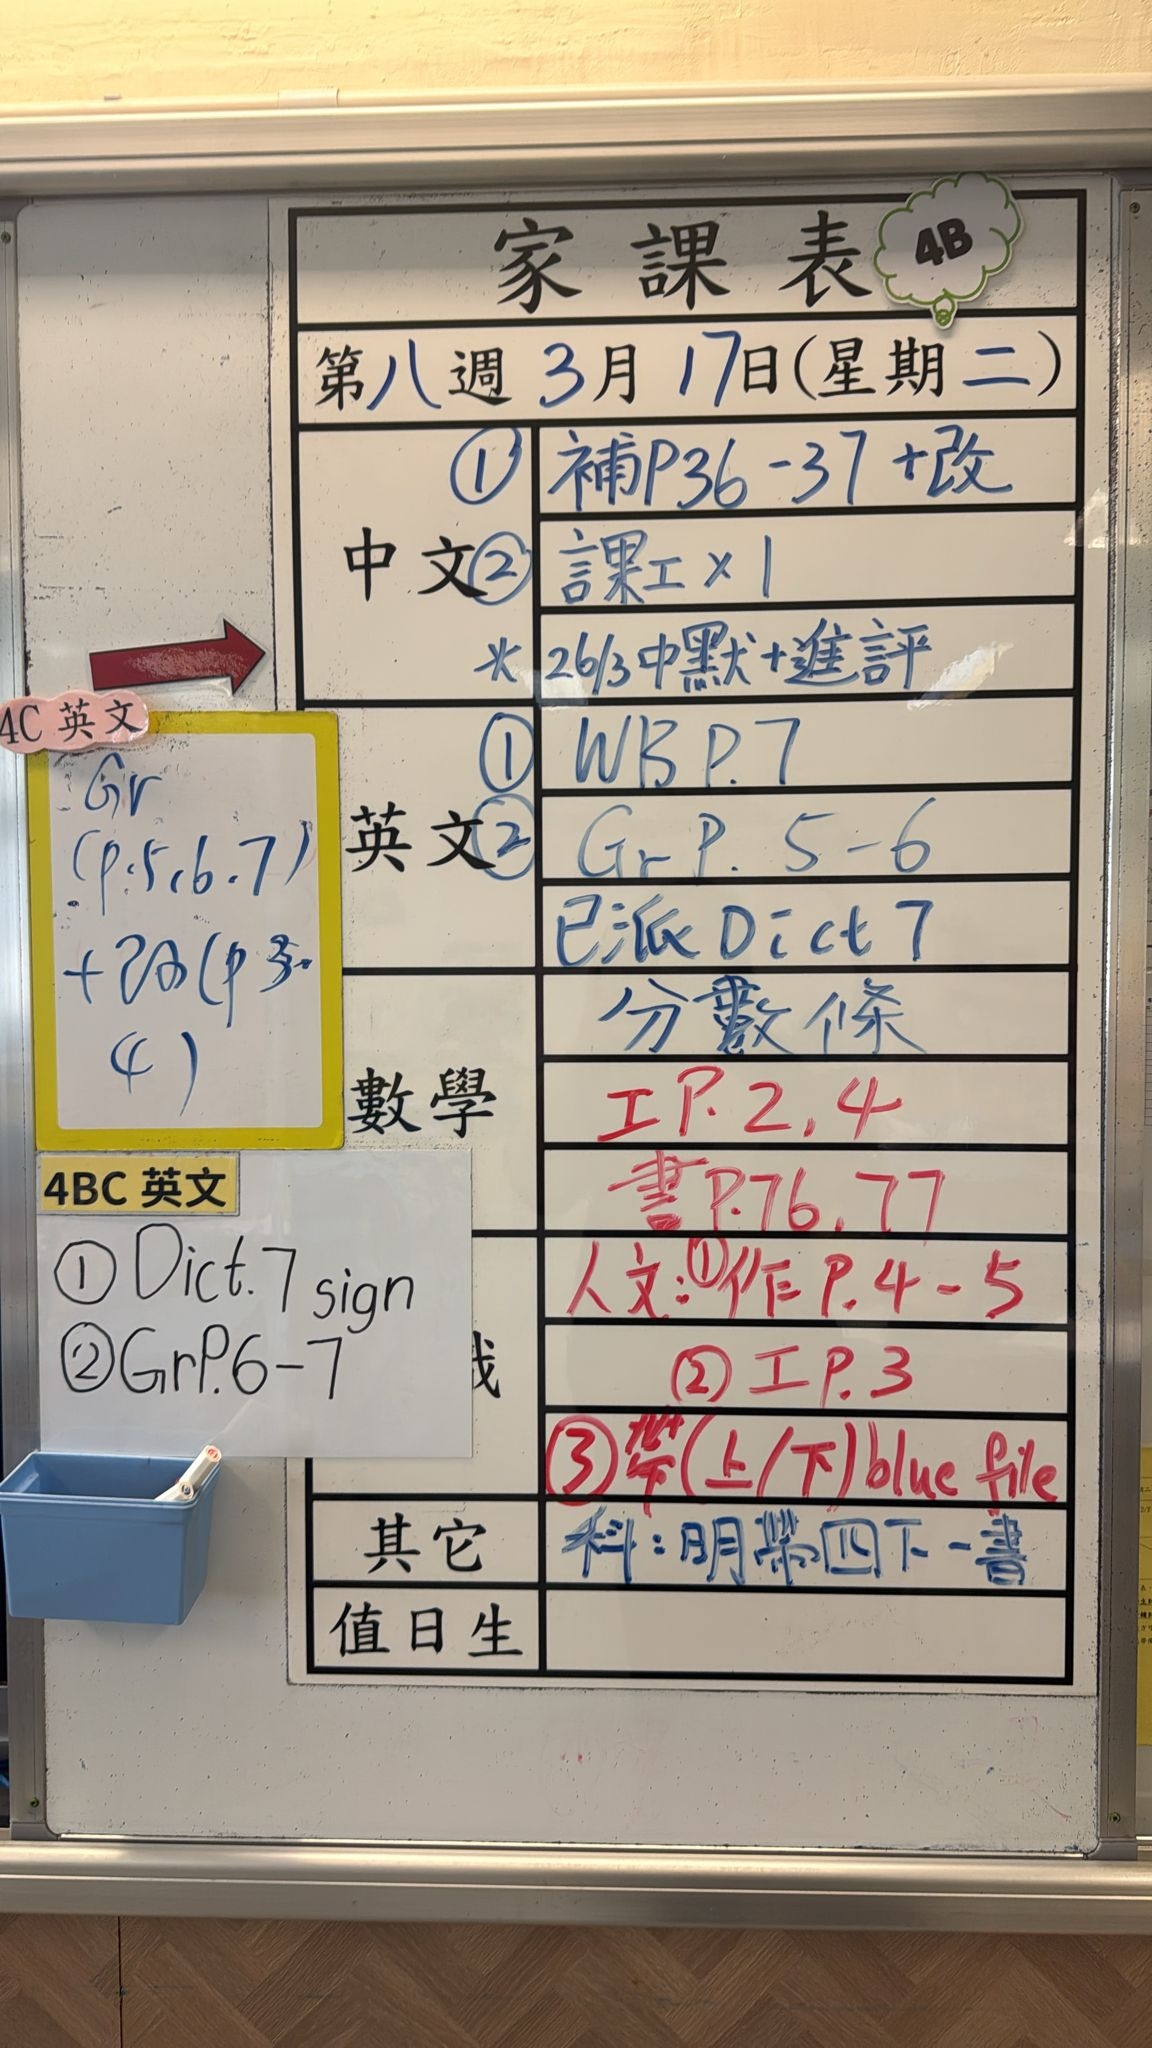 家課表
4B
第八週 3月17日(星期二)
中文
① 補P36-37+改
② 課工×1
* 26/3中默+進評
英文
① WB P.7
② Gr P. 5-6
已派 Dict 7
數學
分數條
工P.2,4
書P.76,77
人文:①作P.4-5
② 工P.3
③帶(上/下)blue file
其它
科:明帶四下一書
值日生
4C 英文
Gr
(p.5,6.7)
+改(p 3.
4)
4BC 英文
① Dict.7 sign
② GrP.6-7